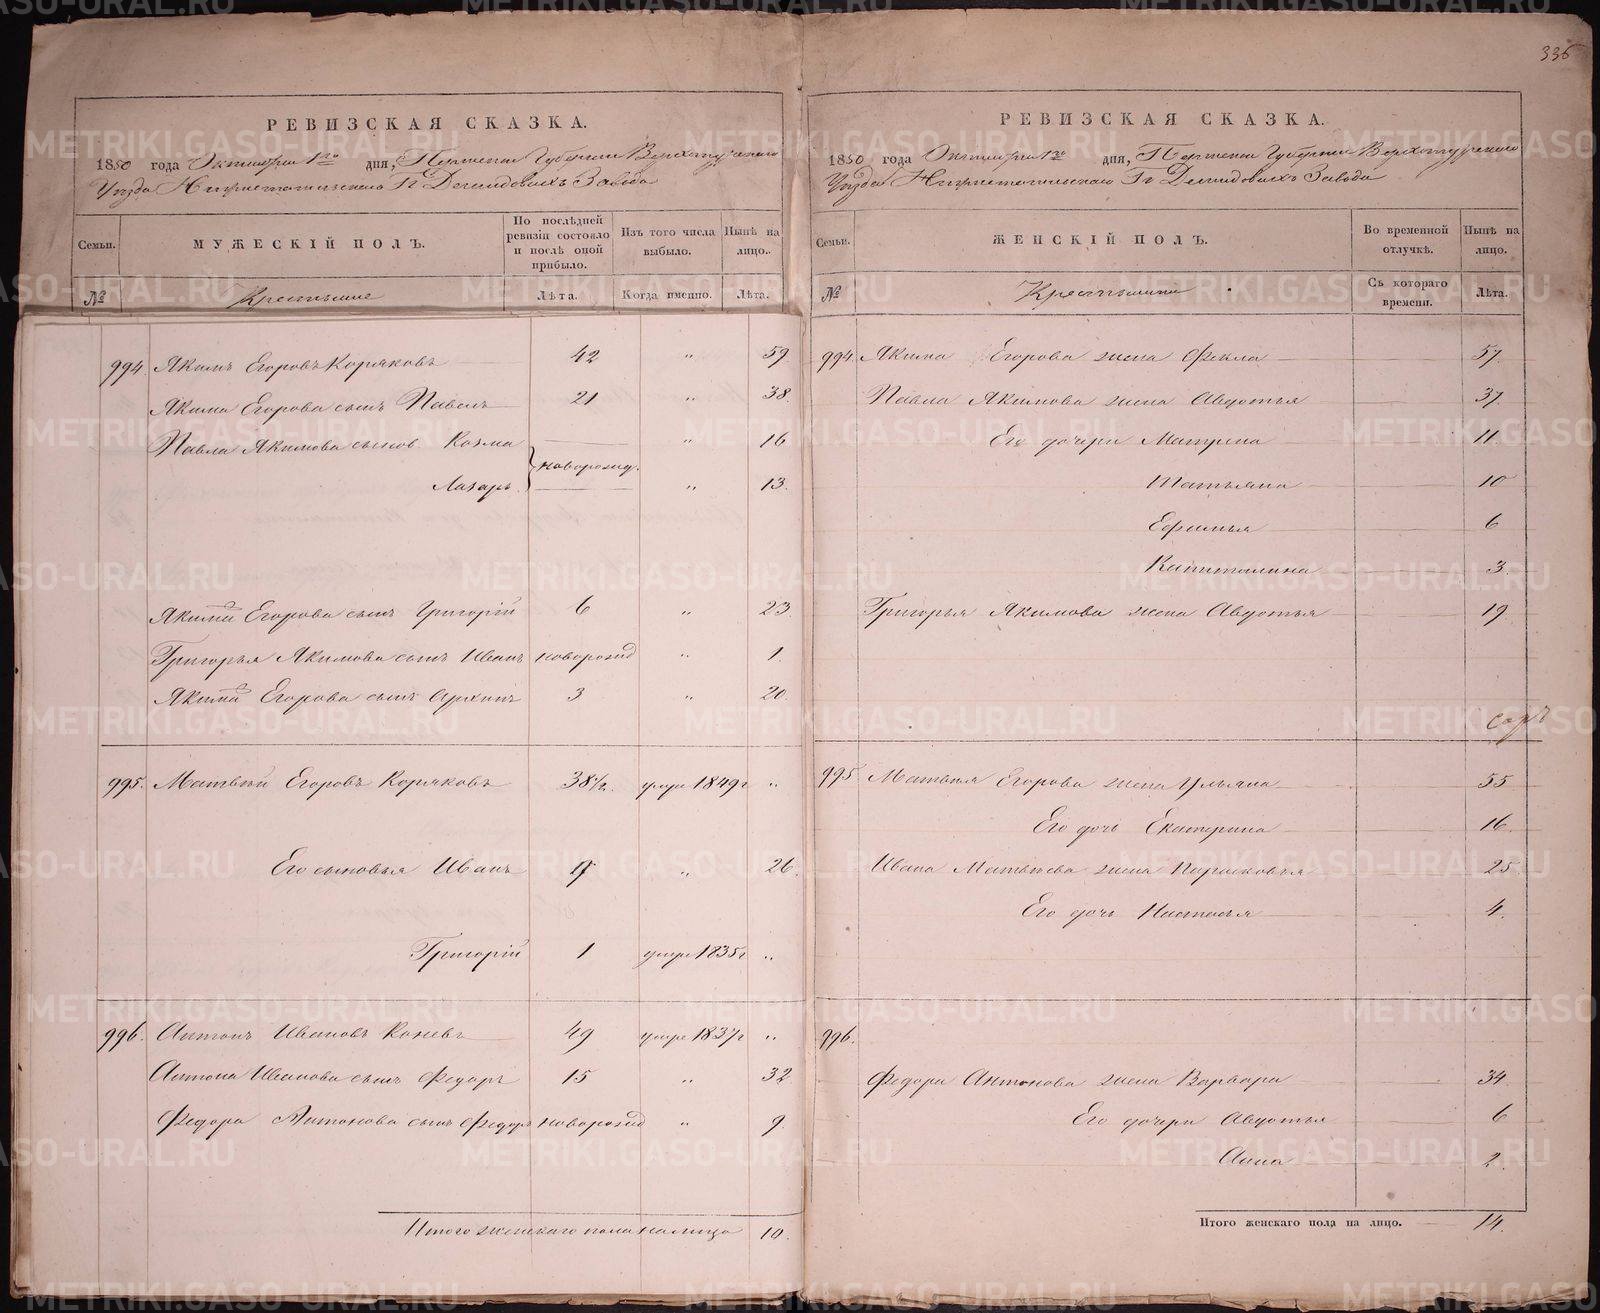 336
РЕВИЗСКАЯ СКАЗКА.
1850 года Октября 1го дня, Пермской Губернии Верхотурскаго
Уезда Нижнетагильскаго Гг Демидовыхъ Завода
Семьи. МУЖЕСКІЙ ПОЛЪ. По послѣдней ревизіи состояло и послѣ оной прибыло. Изъ того числа выбыло. Нынѣ на лицо.
№ Крестьяне Лѣта. Когда именно. Лѣта.
994 Якимъ Егоровъ Коряковъ 42 " 59
Якима Егорова сынъ Павелъ 21 " 38.
Павла Якимова сынов. Козма " 16
новорожд.
Лазарь " 13.
Якима Егорова сынъ Григорій 6 " 23.
Григорья Якимова сынъ Иванъ новорожд " 1.
Якима Егорова сынъ Архипъ 3 " 20.
995. Матвѣй Егоровъ Коряковъ 38½. умре 1849г "
Его сыновья Иванъ 9 " 26.
Григорій 1 умре 1835г "
996. Антонъ Ивановъ Коневъ 49 умре 1837г "
Антона Иванова сынъ Федоръ 15 " 32
Федора Антонова сынъ Федоръ новорожд " 9.
Итого женскаго пола на лицо 10.
РЕВИЗСКАЯ СКАЗКА.
1850 года Октября 1го дня, Пермской Губернии Верхотурскаго
Уезда Нижнетагильскаго Гг Демидовыхъ Завода
Семьи. ЖЕНСКІЙ ПОЛЪ. Во временной отлучкѣ. Нынѣ на лицо.
№ Крестьянки Съ котораго времени. Лѣта.
994. Якима Егорова жена Фекла 57
Павла Якимова жена Авдотья 37.
Его дочери Матрена 11.
Татьяна 10
Ефимья 6
Капиталина 3.
Григорья Якимова жена Авдотья 19
995 Матвѣя Егорова жена Ульяна 55
Его дочь Екатерина 16.
Ивана Матвѣева жена Парасковья 25
Его дочь Настасья 4.
996.
Федора Антонова жена Варвара 34
Его дочери Авдотья 6
Анна 2.
Итого женскаго пола на лицо. 14.
METRIKI.GASO-URAL.RU